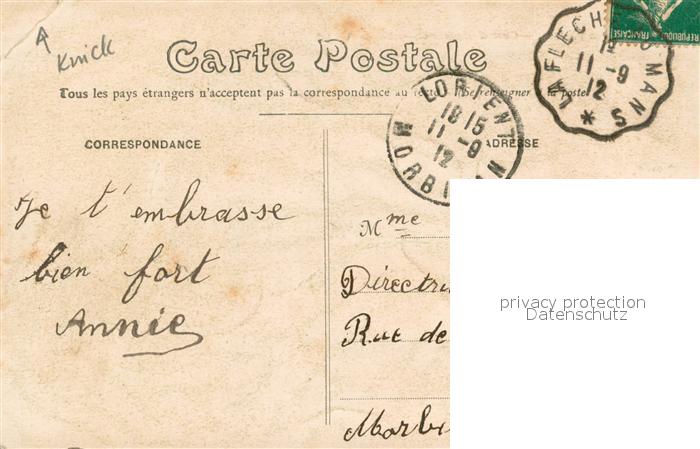 Knick
Carte Postale
Tous les pays étrangers n'acceptent pas la correspondance au recto. (Se renseigner à la poste)
LA FLECHE
MANS
11 -9
12
RÉPUBLIQUE FRANÇAISE
LORIENT
18 15
11 -9
12
MORBIHAN
CORRESPONDANCE
ADRESSE
Je t'embrasse
bien fort
Annie
Mme
Directri
Rue de
Morbi
privacy protection
Datenschutz